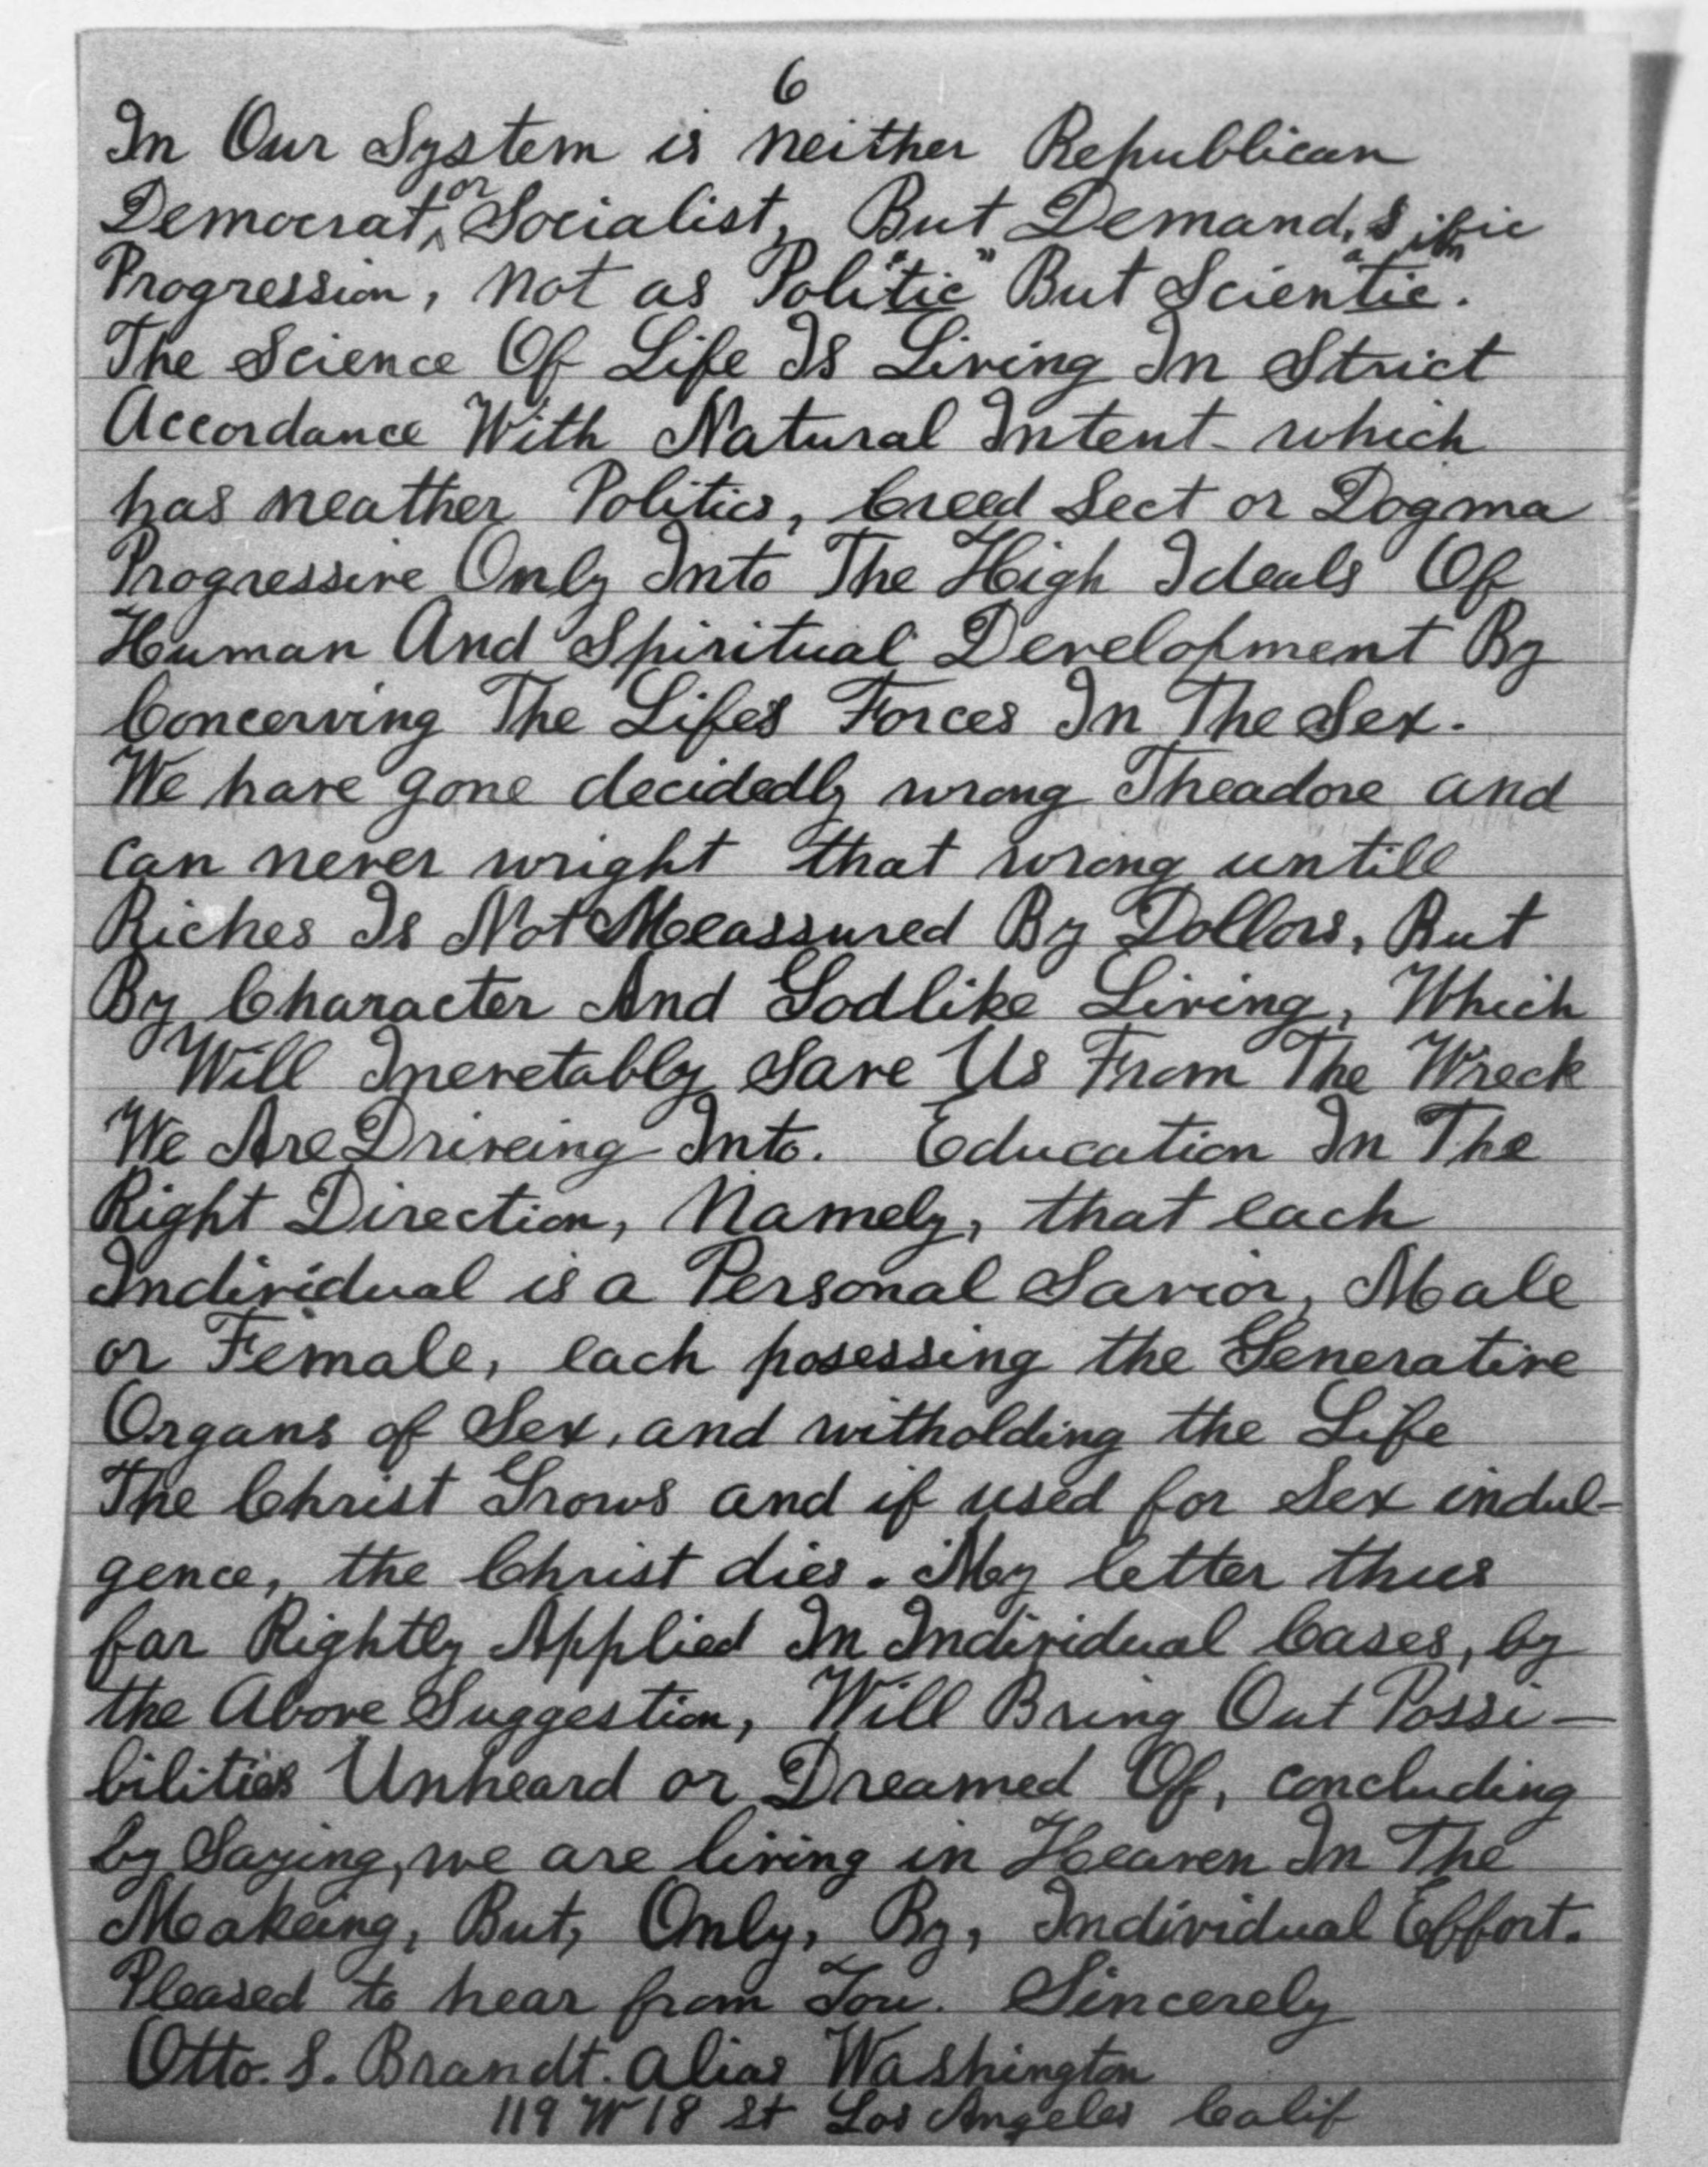 6
In Our System is neither Republican
Democrat, or Socialist, But Demand, s
Progression, not as Poli"tic" But Scientific.
The Science Of Life Is Living In Strict
Accordance With Natural Intent - which
has neather Politics, Creed Sect or Dogma
Progressive Only Into The High Ideals Of
Human And Spiritual Development By
Concerving The Lifes Forces In The Sex.
We have gone decidedly wrong Theadore and
can never wright that wrong untill
Riches Is Not Meassured By Dollors, But
By Character And Godlike Living, Which
Will Inevetably Save Us From The Wreck
We Are Driveing Into. Education In The
Right Direction, Namely, that each
Individual is a Personal Savior, Male
or Female, each posessing the Generative
Organs of Sex, and witholding the Life
The Christ Grows and if used for Sex indul-
gence, the Christ dies. My letter thus
far Rightly Applied In Individual Cases, by
the Above Suggestion, Will Bring Out Possi-
bilities Unheard or Dreamed Of, concluding
by Saying, we are living in Heaven In The
Makeing, But, Only, By, Individual Effort.
Pleased to hear from You. Sincerely
Otto. S. Brandt. alias Washington
119 W 18 St Los Angeles Calif